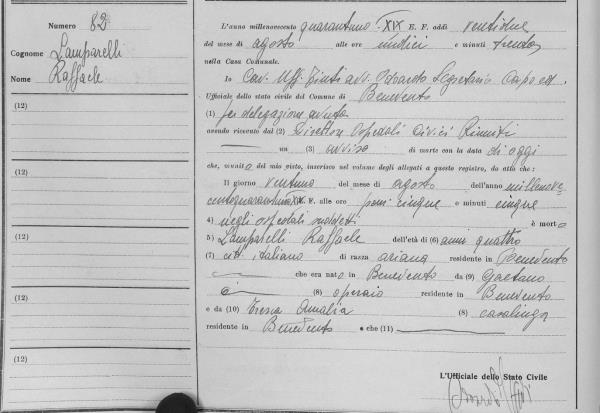 Numero 82
Cognome Lamparelli
Nome Raffaele
(12)
(12)
(12)
(12)
(12)
(12)
L'anno millenovecento quarantuno XIX E. F. addì ventidue
del mese di agosto alle ore undici e minuti trenta
nella Casa Comunale.
Io Cav. Uff. Tinti avv. Odoardo Segretario Capo ed
Ufficiale dello stato civile del Comune di Benevento
(1) per delegazione avuta
avendo ricevuto dal (2) Direttore Ospedali Civici Riuniti
un (3) avviso di morte con la data di oggi
che, munito del mio visto, inserisco nel volume degli allegati a questo registro, do atto che:
Il giorno ventuno del mese di agosto dell'anno millenove
centoquarantuno XIX E. F. alle ore pom. cinque e minuti cinque
4) negli ospedali suddetti è morto
5) Lamparelli Raffaele dell'età di (6) anni quattro
(7) citt. italiano di razza ariana residente in Benevento
che era nato in Benevento da (9) Gaetano
(8) operaio residente in Benevento
e da (10) Amalia (8) casalinga
residente in Benevento e che (11)
L'Ufficiale dello Stato Civile